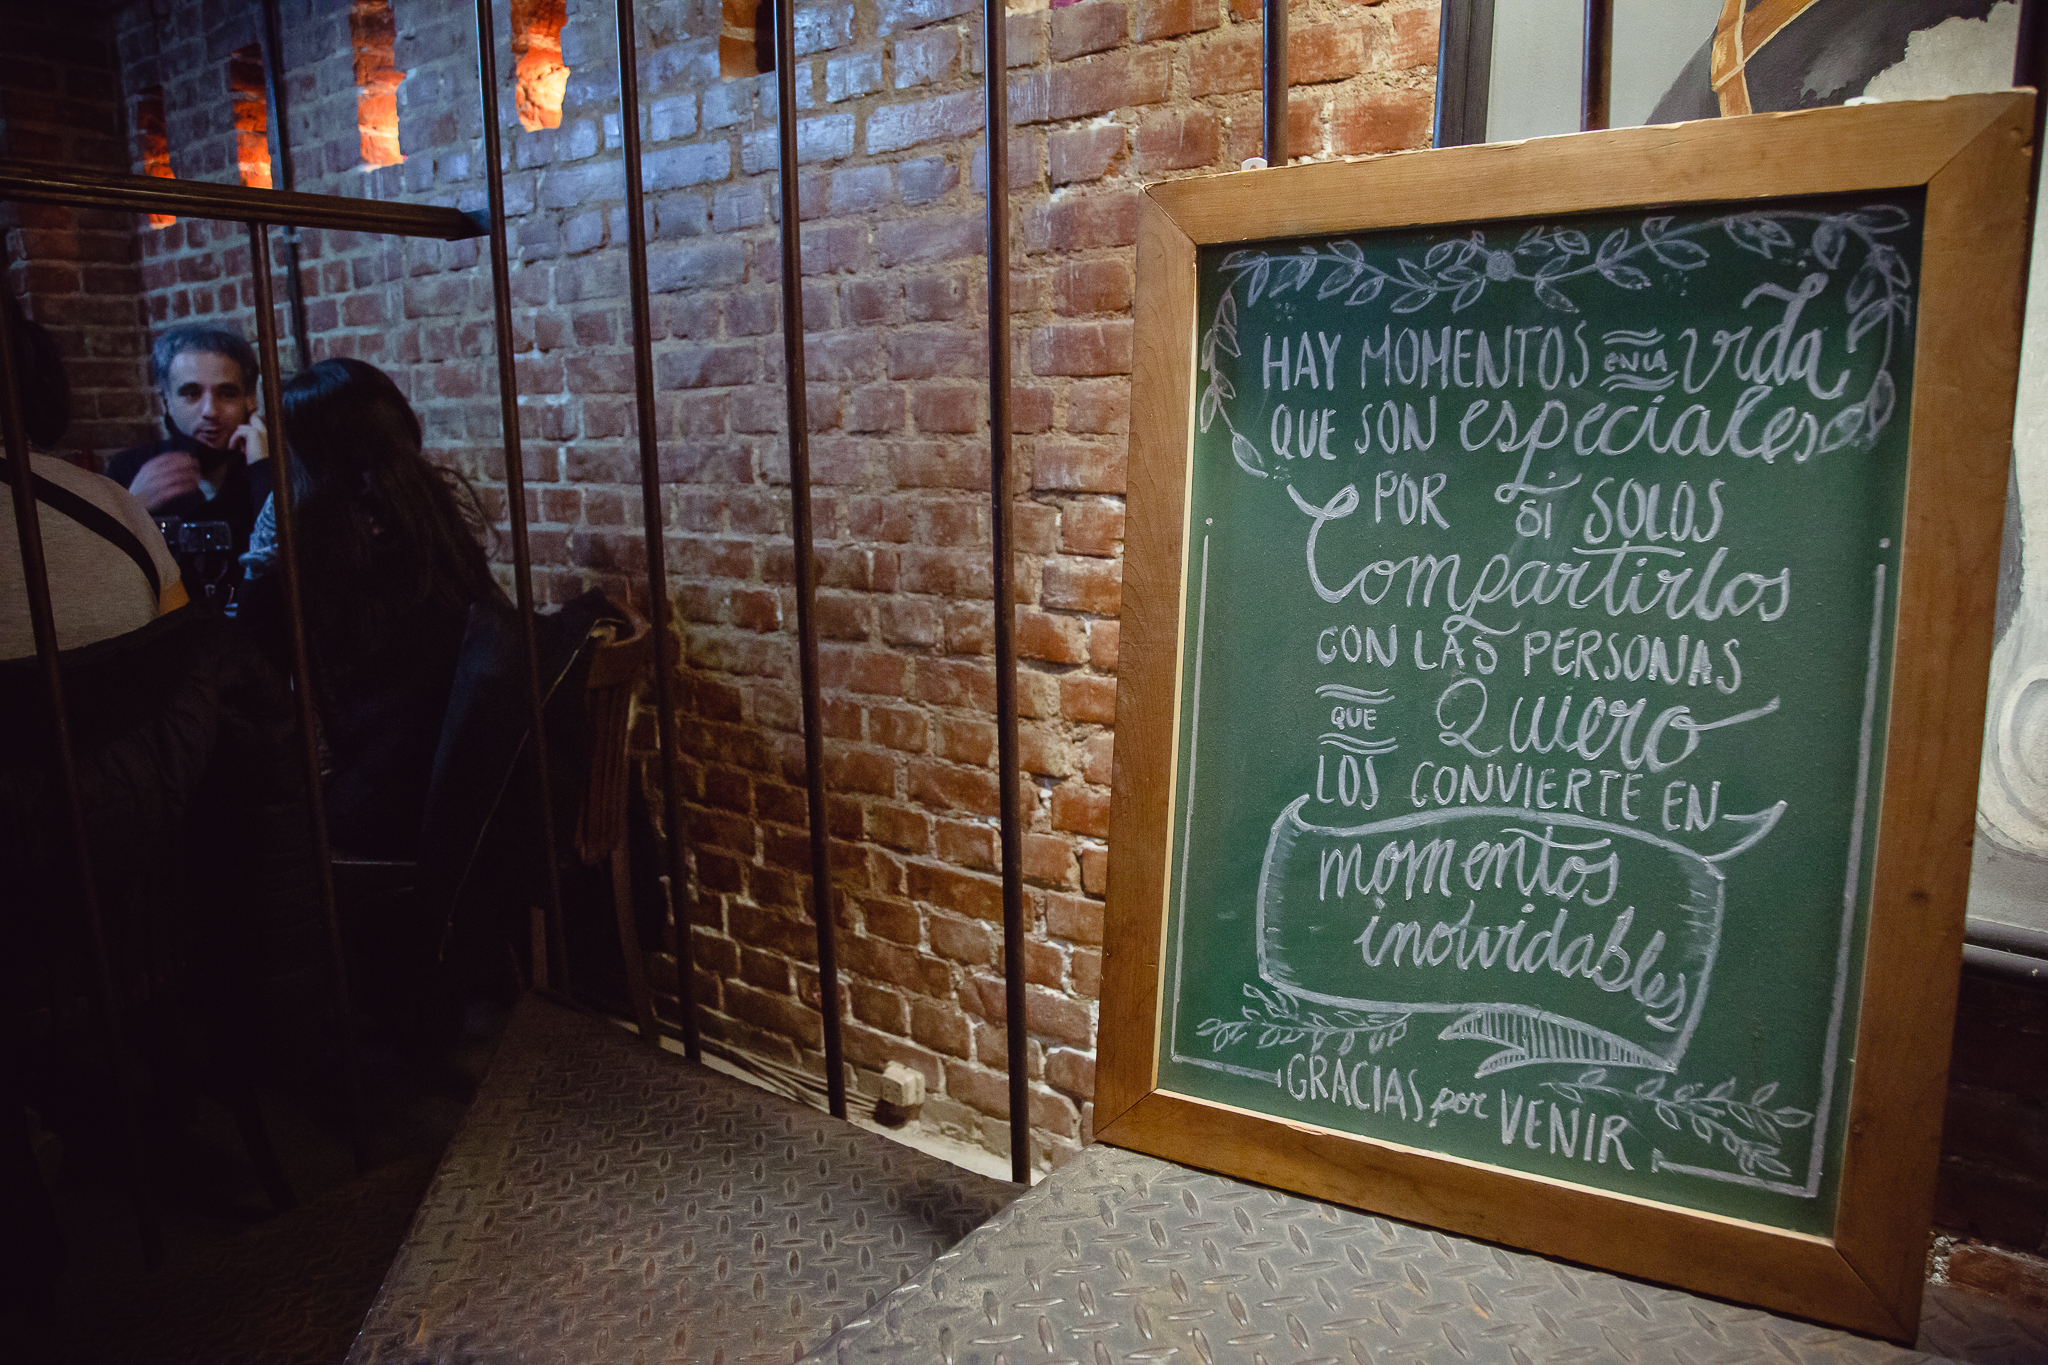 HAY MOMENTOS EN LA vida
QUE SON especiales
POR SÍ SOLOS
Compartirlos
CON LAS PERSONAS
QUE Quiero
LOS CONVIERTE EN
momentos
inolvidables
GRACIAS por VENIR